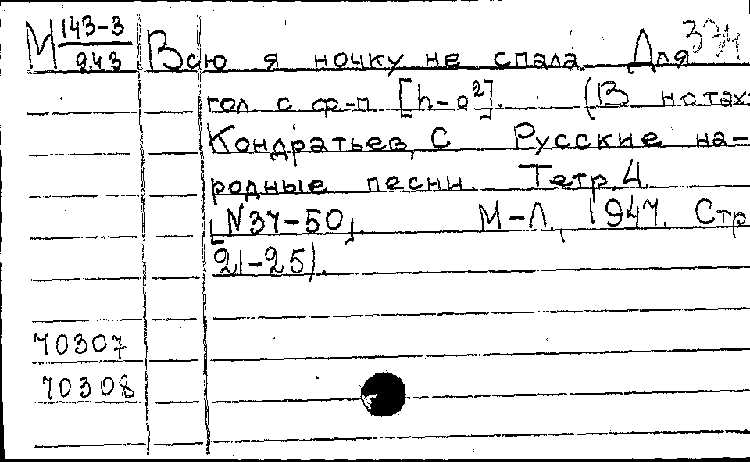 М 143-3/243 Всю я ночку не спала Для 334
гол. с ф-п. [h-a²]. (В нотах:
Кондратьев, С Русские на-
родные песни. Тетр. 4
[№37-50]. М-Л., 1947. Стр
21-25).
70307
70308